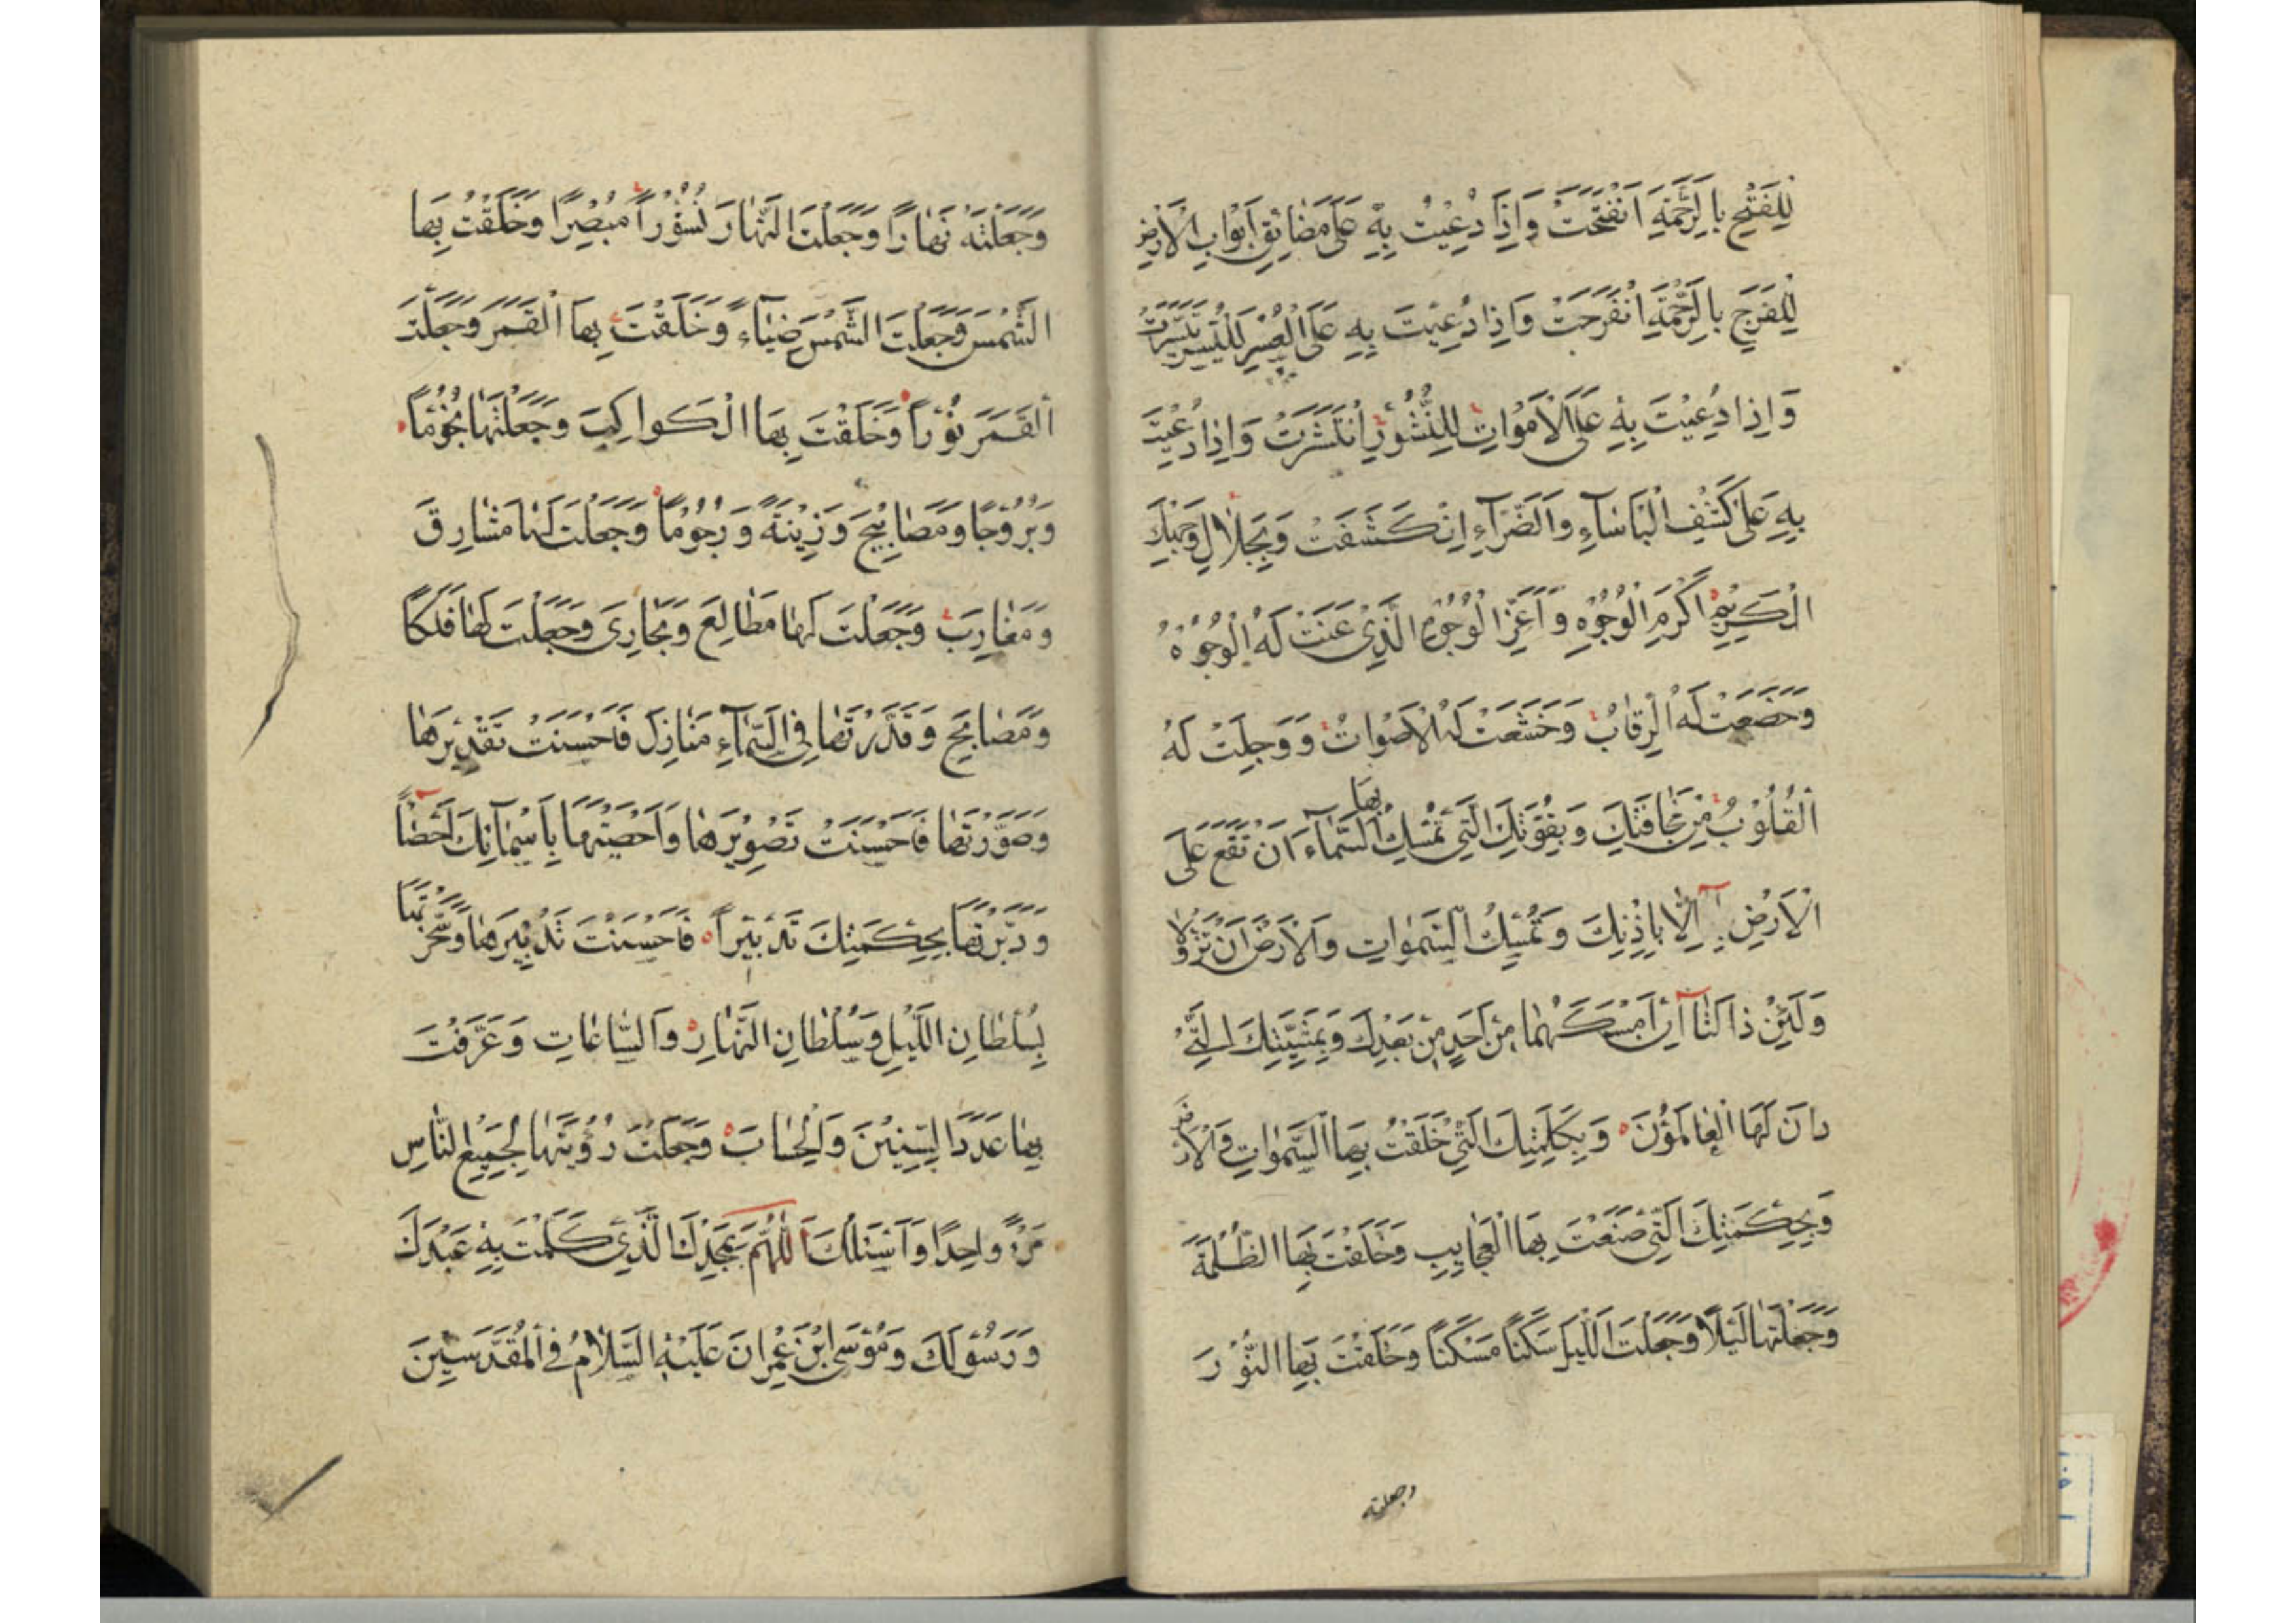 لِلْفَتْحِ بِالرَّحْمَةِ انْفَتَحَتْ وَاِذَا دُعِيْتَ بِهٖ عَلٰى مَضَائِقِ اَبْوَابِ الْاَرْضِ
لِلْفَرَجِ بِالرَّحْمَةِ انْفَرَجَتْ وَاِذَا دُعِيْتَ بِهٖ عَلَى الْعُسْرِ لِلْيُسْرِ تَيَسَّرَتْ
وَاِذَا دُعِيْتَ بِهٖ عَلَى الْاَمْوَاتِ لِلنُّشُوْرِ انْتَشَرَتْ وَاِذَا دُعِيْتَ
بِهٖ عَلٰى كَشْفِ الْبَاْسَآءِ وَالضَّرَّآءِ اِنْكَشَفَتْ وَبِجَلَالِ وَجْهِكَ
الْكَرِيْمِ اَكْرَمِ الْوُجُوْهِ وَاَعَزِّ الْوُجُوْهِ الَّذِيْ عَنَتْ لَهُ الْوُجُوْهُ
وَخَضَعَتْ لَهُ الرِّقَابُ وَخَشَعَتْ لَهُ الْاَصْوَاتُ وَوَجِلَتْ لَهُ
الْقُلُوْبُ مِنْ مَخَافَتِكَ وَبِقُوَّتِكَ الَّتِيْ تُمْسِكُ بِهَا السَّمَآءَ اَنْ تَقَعَ عَلَى
الْاَرْضِ اِلَّا بِاِذْنِكَ وَتُمْسِكُ السَّمٰوَاتِ وَالْاَرْضَ اَنْ تَزُوْلَا
وَلَئِنْ زَالَتَا اِنْ اَمْسَكَهُمَا مِنْ اَحَدٍ مِنْ بَعْدِكَ وَبِمَشِيَّتِكَ الَّتِيْ
دَانَ لَهَا الْعَالَمُوْنَ وَبِكَلِمَتِكَ الَّتِيْ خَلَقْتَ بِهَا السَّمٰوَاتِ وَالْاَرْضَ
وَبِحِكْمَتِكَ الَّتِيْ صَنَعْتَ بِهَا الْعَجَايِبَ وَخَلَقْتَ بِهَا الظُّلْمَةَ
وَجَعَلْتَهَا لَيْلًا وَجَعَلْتَ اللَّيْلَ سَكَنًا مَسْكَنًا وَخَلَقْتَ بِهَا النُّوْرَ
وجعلته
وَجَعَلْتَهُ نَهَارًا وَجَعَلْتَ النَّهَارَ نُشُوْرًا مُبْصِرًا وَخَلَقْتَ بِهَا
الشَّمْسَ وَجَعَلْتَ الشَّمْسَ ضِيَاءً وَخَلَقْتَ بِهَا الْقَمَرَ وَجَعَلْتَ
الْقَمَرَ نُوْرًا وَخَلَقْتَ بِهَا الْكَوَاكِبَ وَجَعَلْتَهَا نُجُوْمًا
وَبُرُوْجًا وَمَصَابِيْحَ وَزِيْنَةً وَرُجُوْمًا وَجَعَلْتَ لَهَا مَشَارِقَ
وَمَغَارِبَ وَجَعَلْتَ لَهَا مَطَالِعَ وَمَجَارِىَ وَجَعَلْتَ لَهَا فَلَكًا
وَمَصَابِحَ وَقَدَّرْتَهَا فِي السَّمَآءِ مَنَازِلَ فَاَحْسَنْتَ تَقْدِيْرَهَا
وَصَوَّرْتَهَا فَاَحْسَنْتَ تَصْوِيْرَهَا وَاَحْصَيْتَهَا بِاَسْمَآئِكَ اِحْصَآءً
وَدَبَّرْتَهَا بِحِكْمَتِكَ تَدْبِيْرًا فَاَحْسَنْتَ تَدْبِيْرَهَا وَسَخَّرْتَهَا
بِسُلْطَانِ اللَّيْلِ وَسُلْطَانِ النَّهَارِ وَالسَّاعَاتِ وَعَرَّفْتَ
بِهَا عَدَدَ السِّنِيْنَ وَالْحِسَابَ وَجَعَلْتَ رُؤْيَتَهَا لِجَمِيْعِ النَّاسِ
مَرْءً وَاحِدًا وَاَسْئَلُكَ اَللّٰهُمَّ بِمَجْدِكَ الَّذِيْ كَلَّمْتَ بِهٖ عَبْدَكَ
وَرَسُوْلَكَ وَمُوْسَى ابْنَ عِمْرَانَ عَلَيْهِ السَّلَامُ فِي الْمُقَدَّسِيْنَ